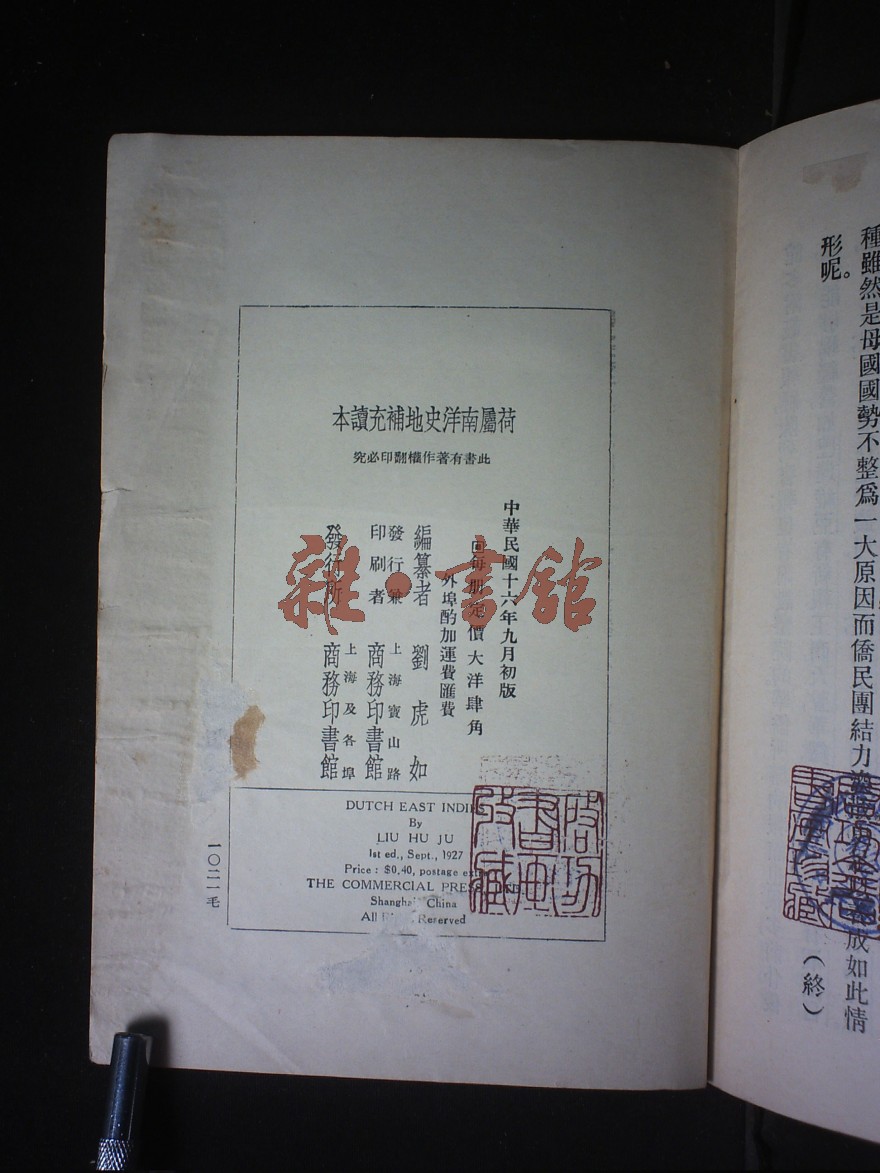 種雖然是母國國勢不整爲一大原因而僑民團結力
成如此情
形呢。
(終)
荷屬南洋史地補充讀本
此書有著作權翻印必究
中華民國十六年九月初版
每册定價大洋肆角
外埠酌加運費匯費
編纂者 劉虎如
發行兼印刷者 上海寶山路 商務印書館
發行所 上海及各埠 商務印書館
DUTCH EAST INDIES
By
LIU HU JU
1st ed., Sept., 1927
Price : $0.40, postage extra
THE COMMERCIAL PRESS, LTD.
Shanghai, China
All Rights Reserved
一〇二一毛
雜·書館